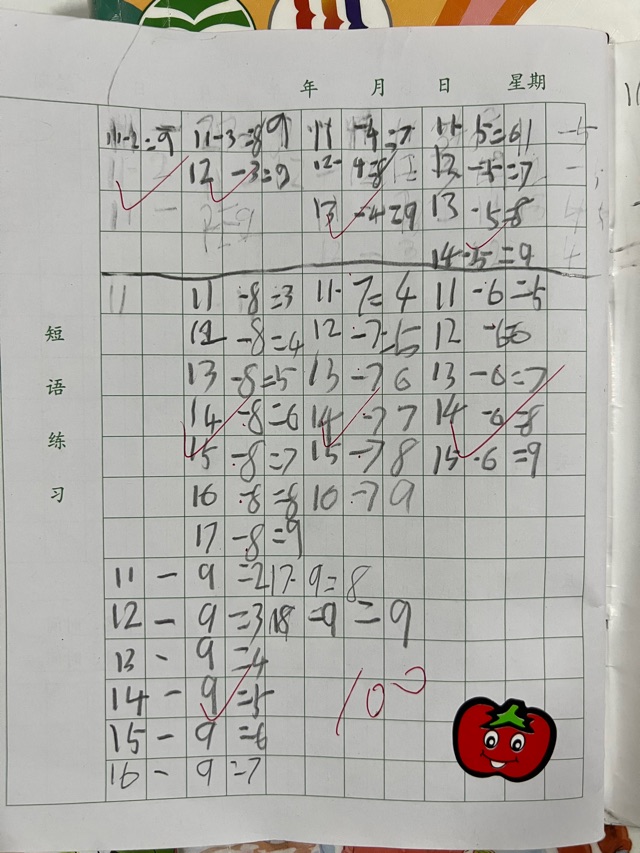 年 月 日 星期
11-2=9 11-3=8 11-4=7 11-5=6
12-3=9 12-4=8 12-5=7
13-4=9 13-5=8
14-5=9
11-8=3 11-7=4 11-6=5
12-8=4 12-7=5 12-6=6
13-8=5 13-7 6 13-6=7
14-8=6 14-7 7 14-6=8
15-8=7 15-7 8 15-6=9
16-8=8 16-7 9
17-8=9
11-9=2 17-9=8
12-9=3 18-9=9
13-9=4
14-9=5
15-9=6
16-9=7
100
短语练习